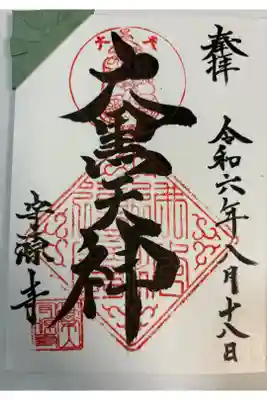 奉拝
令和六年八月十八日
大黒天神
安源寺